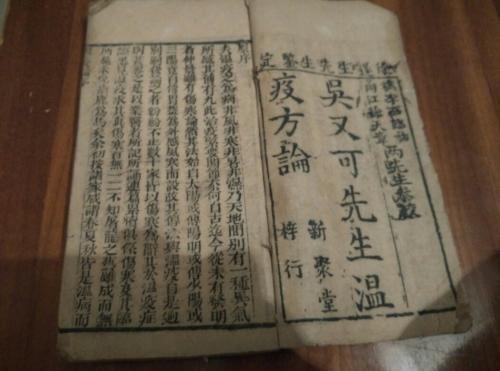 兩先生參敩
吳又可先生溫
疫方論
新聚堂
梓行
原序
夫溫疫之為病非風非寒非暑非濕乃天地間別有一種異氣
所感其傳有九此治疫緊要關節奈何自古迄今從未有發明
者仲景雖有傷寒論然其法始自太陽或傳陽明或傳少陽或
三陽竟自傳胃並為外感風寒而設故其傳法與溫疫自是迥
別嗣後論之者紛紛不止數十家皆以傷寒為辭其於溫疫症
則甚略之是以業醫者所記所誦連篇累牘俱係傷寒及其臨
症悉見溫疫求其真傷寒百無一二不知屠龍之藝雖成而無
所施未免指鹿為馬矣余初按諸家咸謂春夏秋皆是溫病而